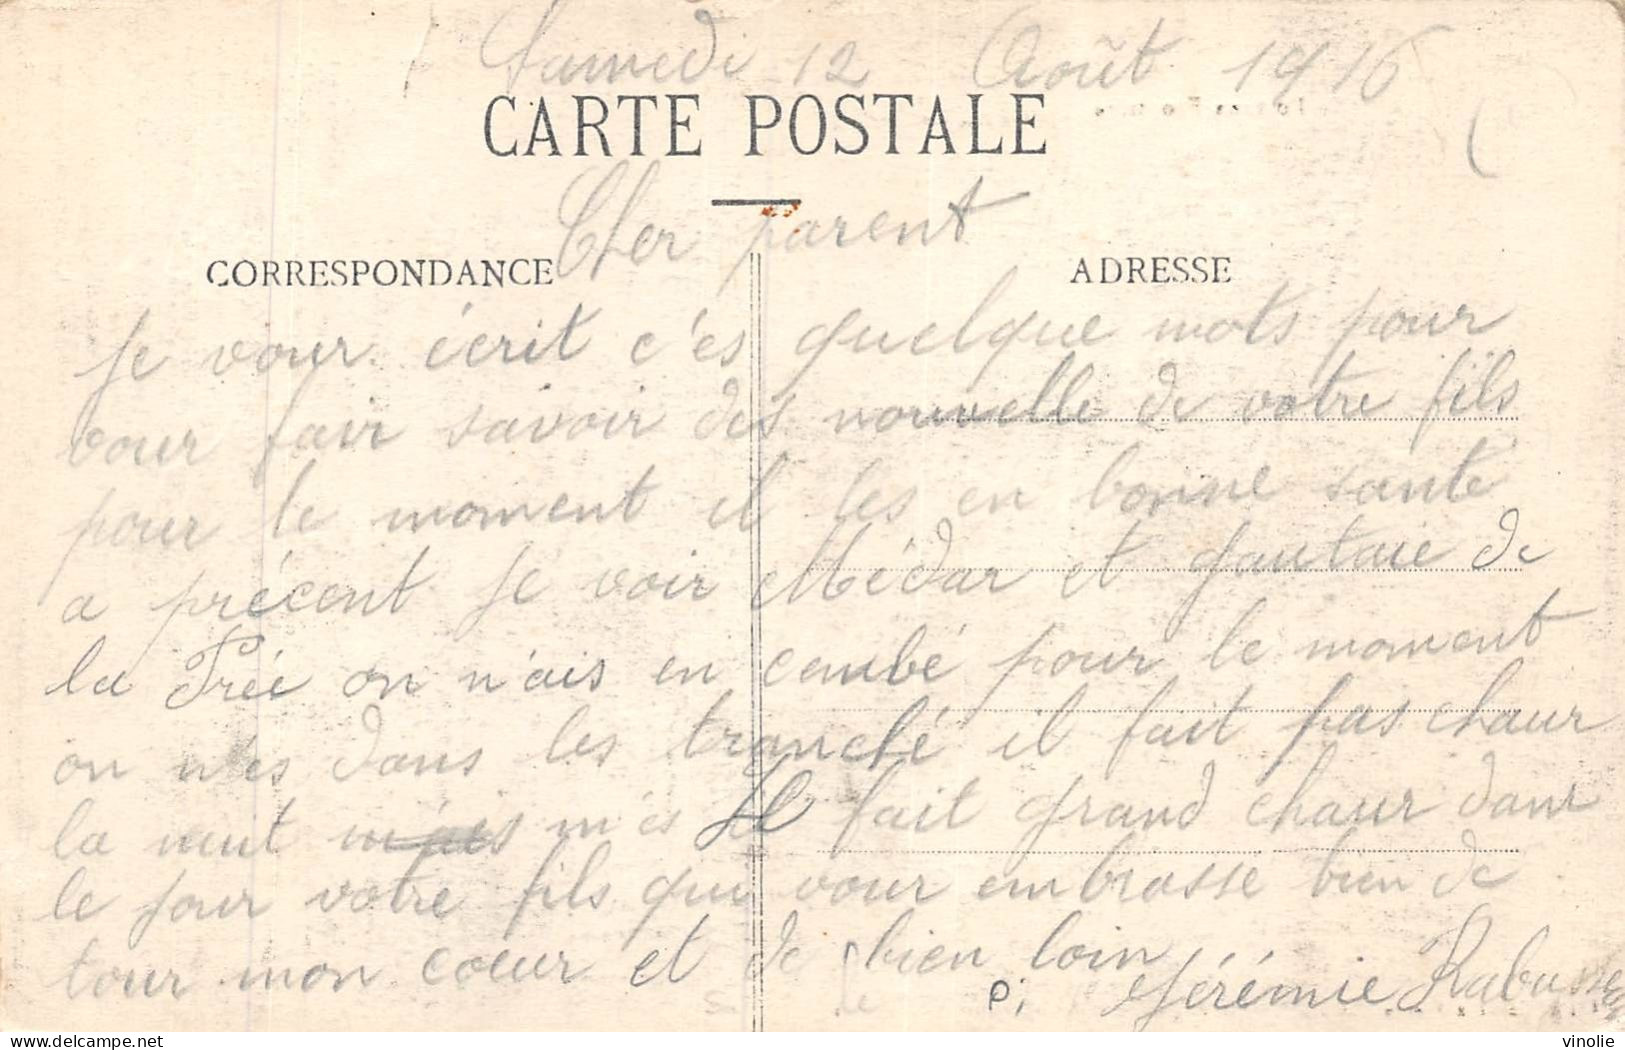 Samedi 12 Août 1916
CARTE POSTALE
Cher parent
CORRESPONDANCE
ADRESSE
Je vour écrit c'es quelque mots pour
vour fair savoir des nouvelle de votre fils
pour le moment il les en bonne santé
a précent Je voir Médar et gautaie de
la Prée on n'ais en cambé pour le moment
on n'es dans les tranché il fait pas chaur
la nuit m'es Il fait grand chaur dans
le jour votre fils qui vour embrasse bien de
tour mon coeur et de bien loin
Jérémie Rabusse
vinolie